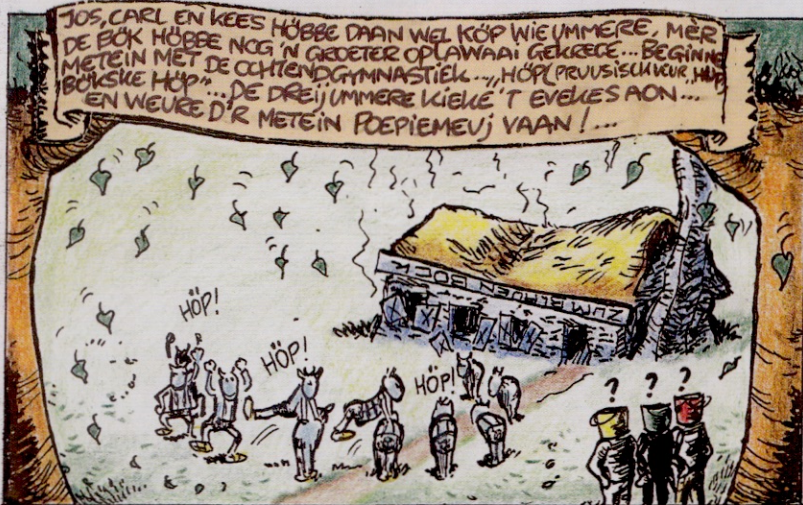 JOS, CARL EN KEES HÖBBE DAAN WEL KÖP WIE UMMERE, MÈR
DE BÖK HÖBBE NOG 'N GROETER OPLAWAAI GEKREGE... BEGINNE
METEIN MET DE OCHTENDGYMNASTIEK... „HÖP (PRUUSISCH VEUR „HUP)
BÖKSKE HÖP"... DE DREIJ UMMERE KIEKE 'T EVEKES AON...
EN WEURE D'R METEIN POEPIEMEUJ VAAN!...
ZUM BLAUEN BOCK
HÖP!
HÖP!
HÖP!
? ? ?